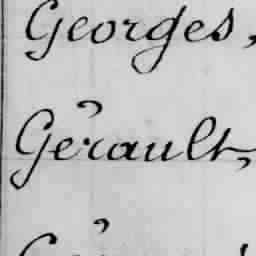 Georges,
Gérault,